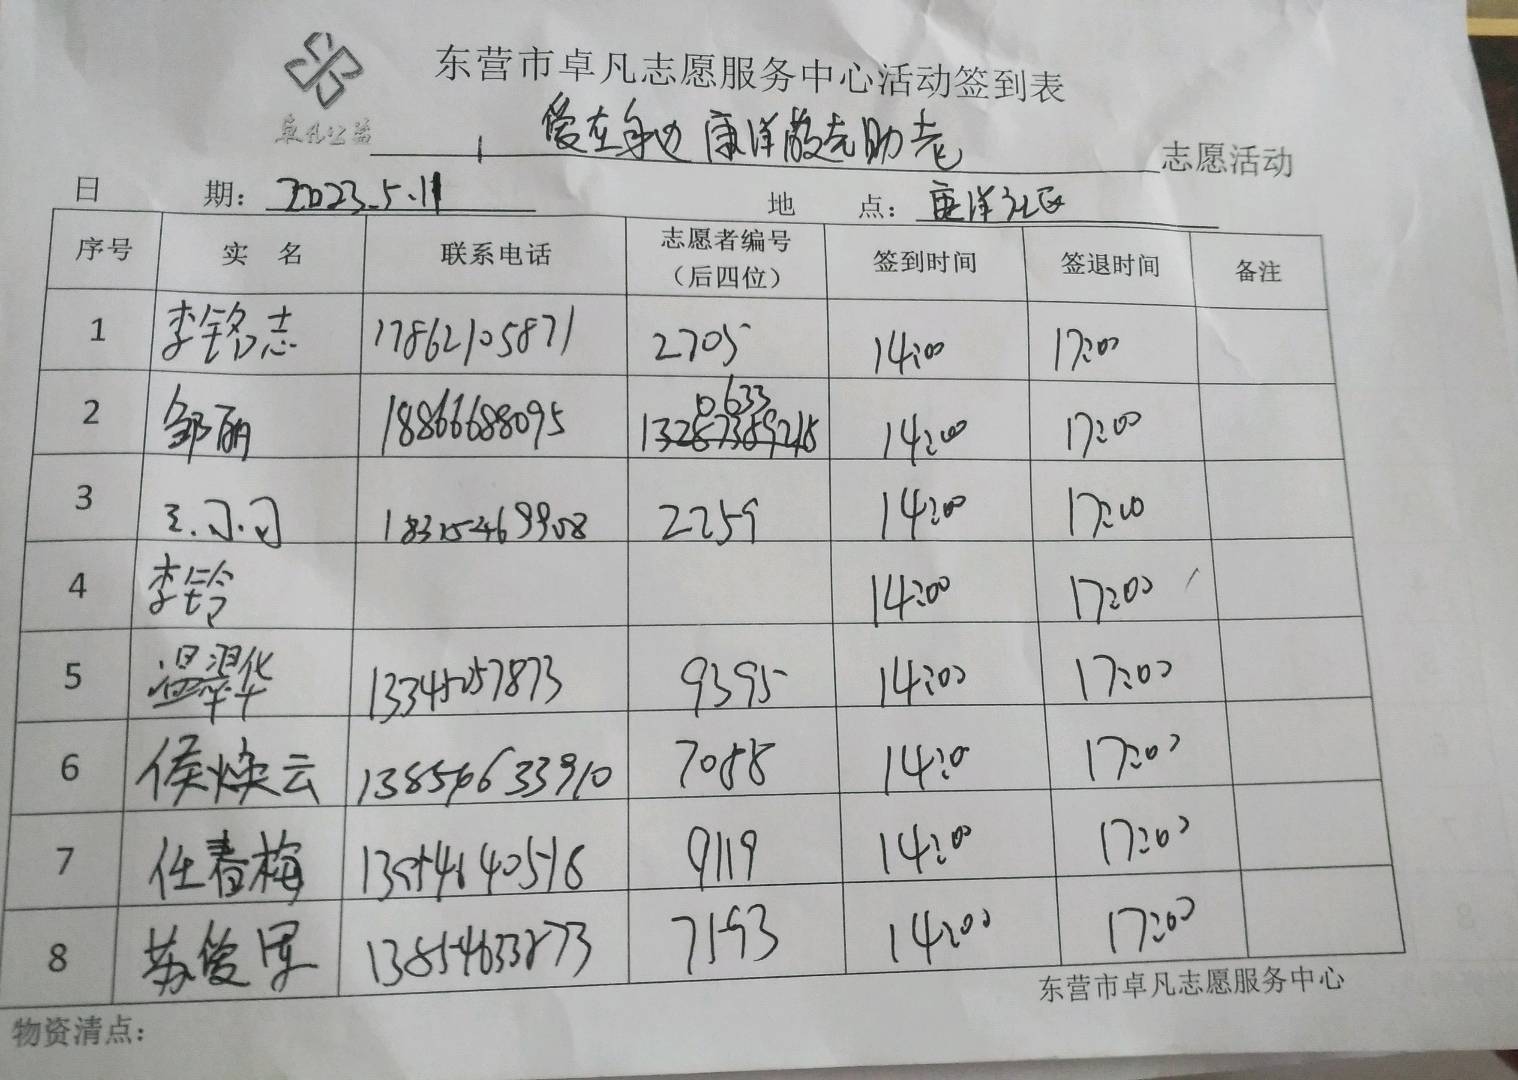 东营市卓凡志愿服务中心活动签到表
卓凡公益
爱在身边 康洋敬老助老 志愿活动
日 期：2023.5.11 地 点：康洋社区
序号 实 名 联系电话 志愿者编号（后四位） 签到时间 签退时间 备注
1 李铭志 17862105871 2705 14:00 17:00
2 邹丽 18866688095 0633 14:00 17:00
3 2259 14:00 17:00
4 李龄 14:00 17:00
5 13345057873 9395 14:00 17:00
6 侯焕云 7088 14:00 17:00
7 任春梅 9119 14:00 17:00
8 苏俊军 7193 14:00 17:00
东营市卓凡志愿服务中心
物资清点：